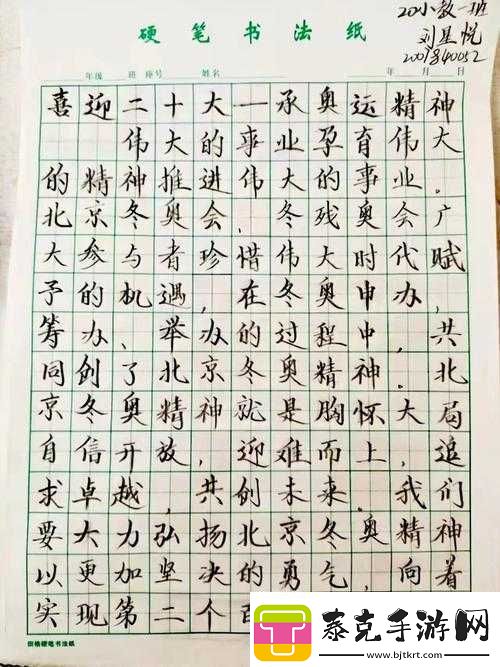 20小教一班
刘星悦
2007840052
硬笔书法纸
年级 班 座号 姓名 年 月 日
喜迎二十大一承奥运精神
伟大的事业孕育伟大
的精神推进伟大的事业。
北京冬奥会、冬残奥会广
大参与者珍惜伟大时代赋
予的机遇,在冬奥申办、
筹办、举办的过程中,共
同创了北京冬奥精神。北
京冬奥精神就是胸怀大局
自信开放,迎难而上,追
求卓越,共创未来。我们
要大力弘扬北京冬奥精神
以更加坚决的勇气,向着
实现第二个百
田格硬笔书法纸
泰克手游网
www.bjtkrt.com